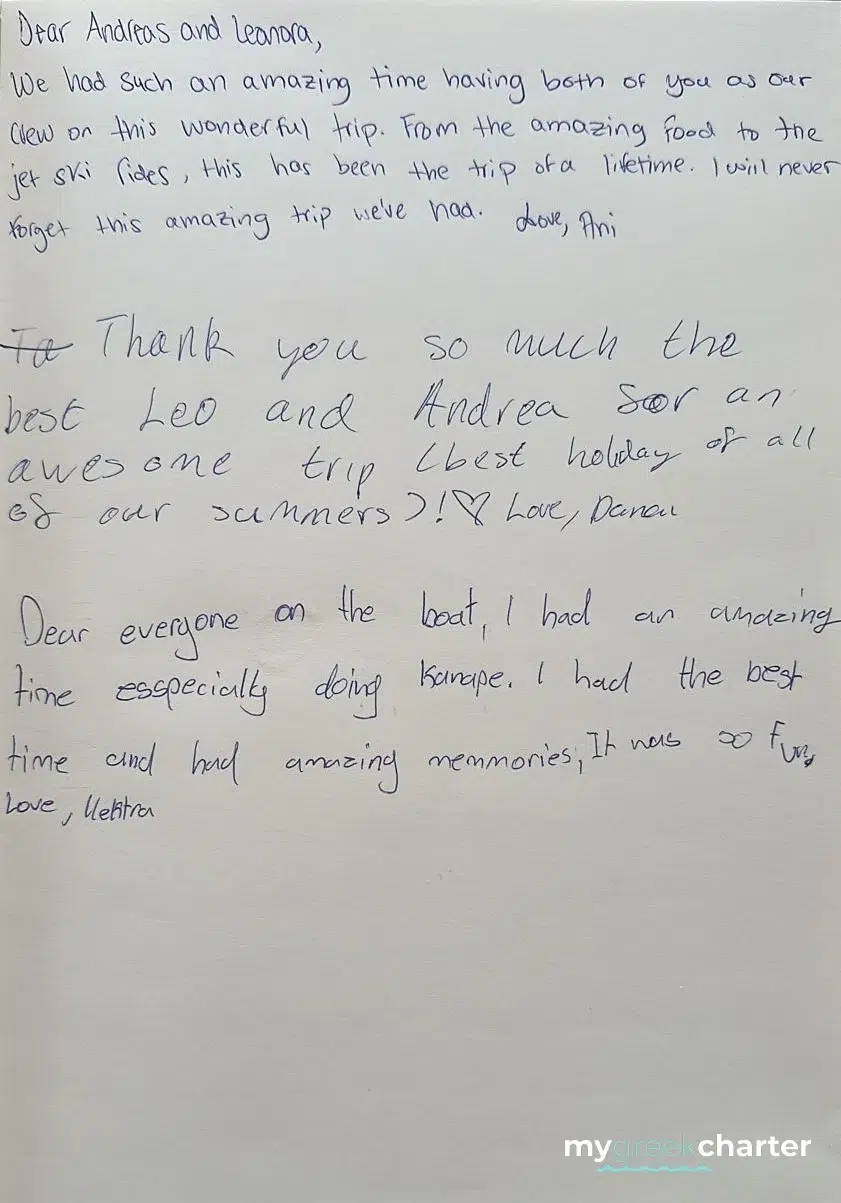 Dear Andreas and Leonora,
We had such an amazing time having both of you as our
crew on this wonderful trip. From the amazing food to the
jet ski rides, this has been the trip of a lifetime. I will never
forget this amazing trip we've had. Love, Ani
To Thank you so much the
best Leo and Andrea for an
awesome trip (best holiday of all
of our summers)!♡ Love, Danau
Dear everyone on the boat, I had an amazing
time esspecially doing Kanape. I had the best
time and had amazing memmories, It was so fun,
Love, Ilektra
mygreekcharter